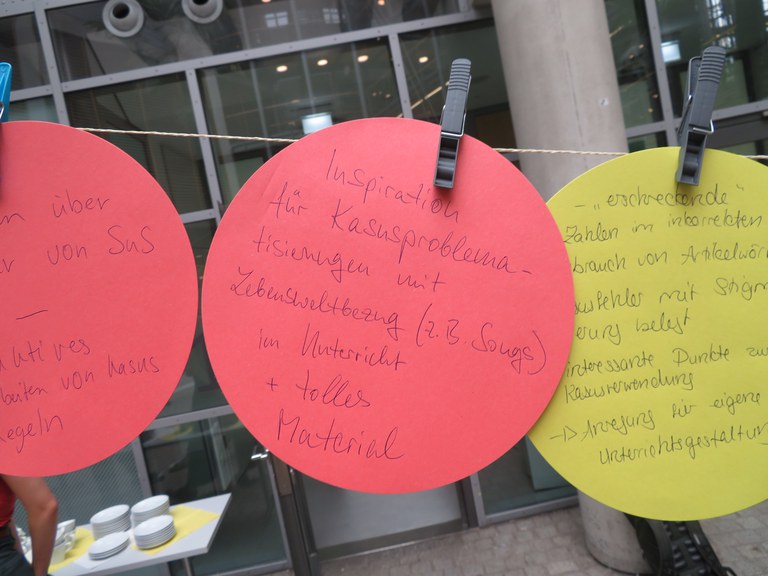 über
von SuS
—
von Kasus
Regeln
Inspiration
für Kasusproblema-
tisierungen mit
Lebensweltbezug (z.B. Songs)
im Unterricht
+ tolles
Material
- „erschreckende"
Zahlen im inkorrekten
brauch von Artikelwör
fehler mit Stigm
erung belegt
interessante Punkte zu
Kasusverwendung
-> Anregung für eigene
Unterrichtsgestaltun